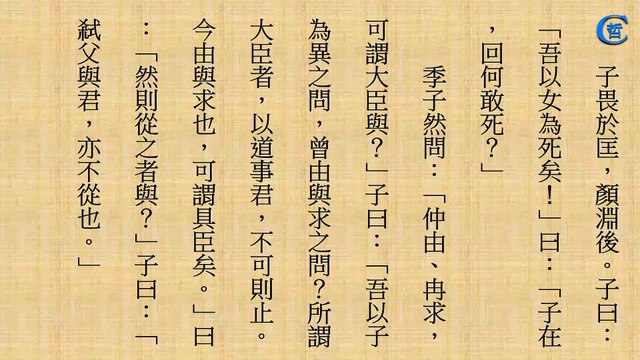 子畏於匡，顏淵後。子曰：
「吾以女為死矣！」曰：「子在
，回何敢死？」
季子然問：「仲由、冉求，
可謂大臣與？」子曰：「吾以子
為異之問，曾由與求之問？所謂
大臣者，以道事君，不可則止。
今由與求也，可謂具臣矣。」曰
：「然則從之者與？」子曰：「
弒父與君，亦不從也。」
哲